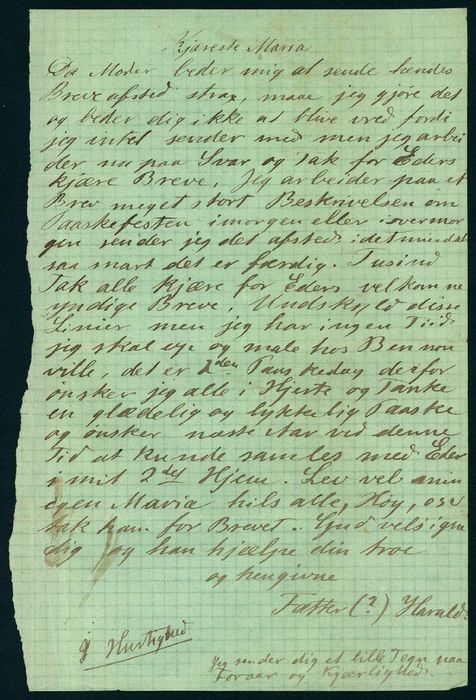 Kjæreste Maria
Da Moder beder mig at sende hendes
Breve afsted strax, maae jeg gjøre det
og beder dig ikke at blive vred fordi
jeg intet sender med men jeg arbei
der nu paa Svar og Tak for Eders
kjære Breve, Jeg arbeider paa et
Brev meget stort Beskrivelsen om
Paaskefesten imorgen eller iovermor
gen sender jeg det afsted, idetmindste
saa snart det er færdig. Tusind
Tak alle kjære for Eders velkomne
yndige Breve, Undskyld disse
Linier men jeg har ingen Tid,
jeg skal op og male hos Bennon
ville, det er 2den Paaskedag derfor
ønsker jeg alle i Hjerte og Tanke
en glædelig og lykkelig Paaske
og ønsker næste Aar ved denne
Tid at kunde samles med Eder
i mit 2det Hjem. Lev vel min
egen Maria hils alle, Hoy, osv
tak ham for Brevet. Gud velsigne
dig og han hjælpe din troe
og hengivne
Fætter (?) Harald.
i Hurtighed
Jeg sender dig et lille Tegn paa
Foraar og Kjærlighed.